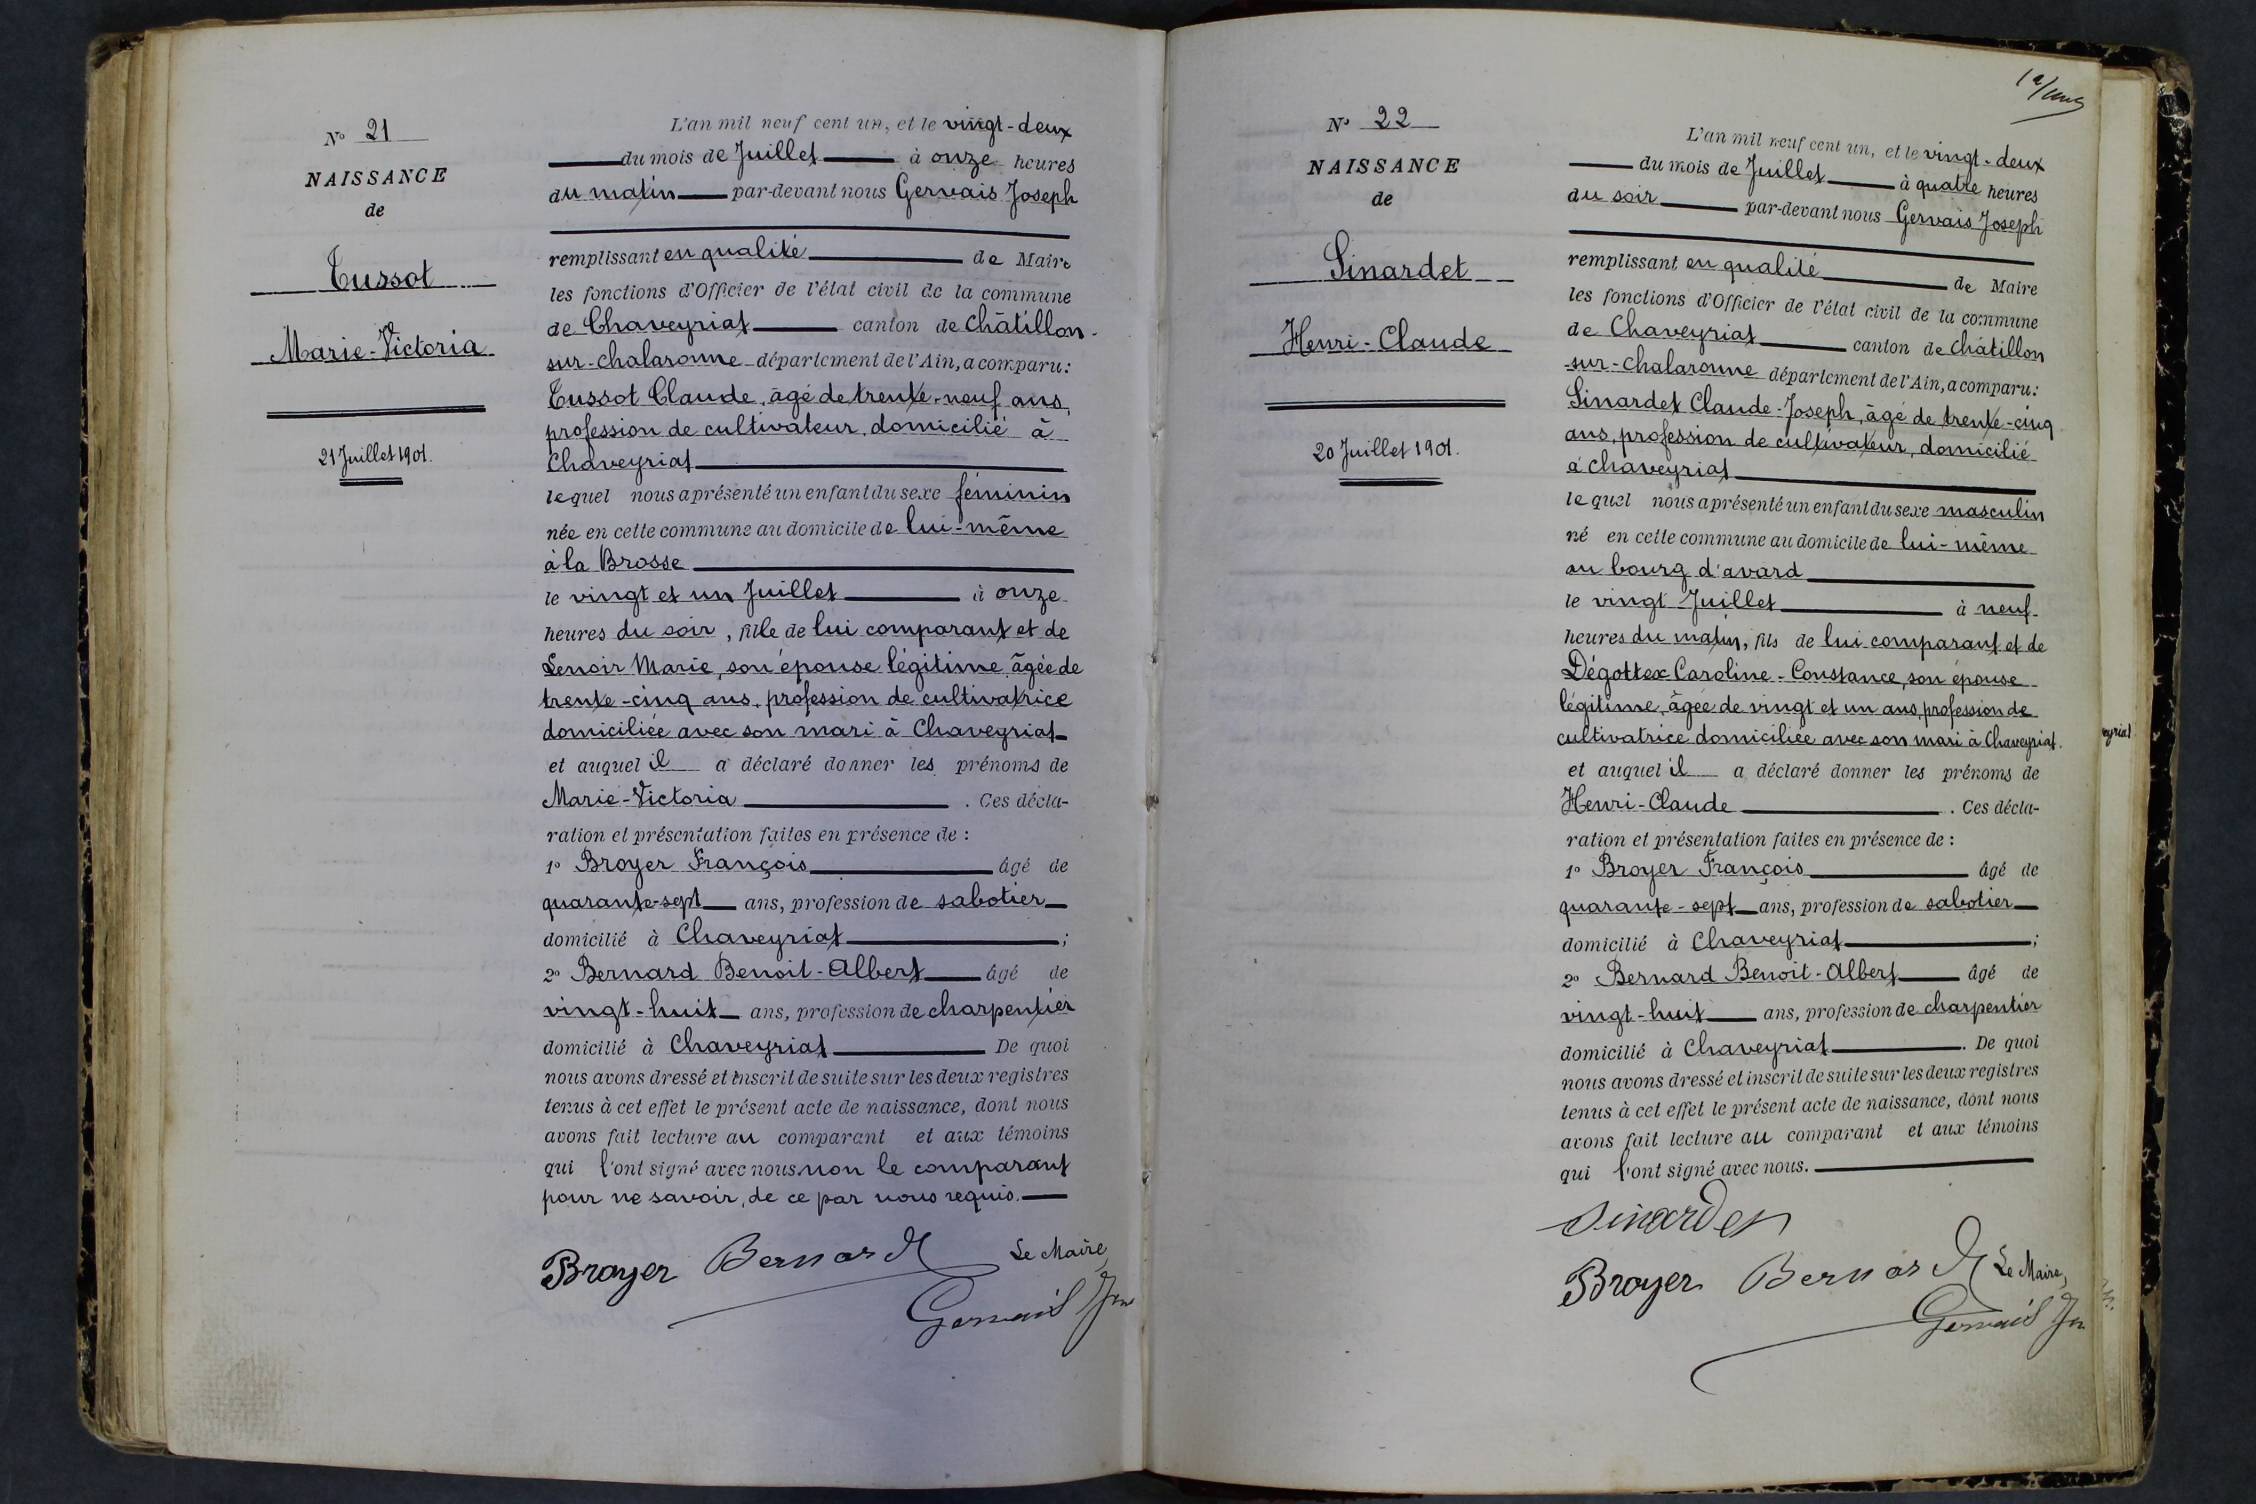 Nº 21
NAISSANCE
de
Tussot
Marie-Victoria
21 Juillet 1901.
L'an mil neuf cent un, et le vingt-deux
du mois de Juillet à onze heures
du matin par-devant nous Gervais Joseph
remplissant en qualité de Maire
les fonctions d'Officier de l'état civil de la commune
de Chaveyriat canton de Châtillon-
sur-Chalaronne département de l'Ain, a comparu:
Tussot Claude, âgé de trente-neuf ans,
profession de cultivateur, domicilié à
Chaveyriat
lequel nous a présenté un enfant du sexe féminin
née en cette commune au domicile de lui-même
à la Brosse
le vingt et un Juillet à onze
heures du soir, fille de lui comparant et de
Lenoir Marie, son épouse légitime, âgée de
trente-cinq ans, profession de cultivatrice
domiciliée avec son mari à Chaveyriat
et auquel il a déclaré donner les prénoms de
Marie-Victoria. Ces décla-
ration et présentation faites en présence de :
1º Broyer François âgé de
quarante-sept ans, profession de sabotier
domicilié à Chaveyriat ;
2º Bernard Benoit-Albert âgé de
vingt-huit ans, profession de charpentier
domicilié à Chaveyriat De quoi
nous avons dressé et inscrit de suite sur les deux registres
tenus à cet effet le présent acte de naissance, dont nous
avons fait lecture au comparant et aux témoins
qui l'ont signé avec nous non le comparant
pour ne savoir, de ce par nous requis.
Broyer Bernard Le Maire,
Gervais Jh
Nº 22
NAISSANCE
de
Sinardet
Henri-Claude
20 Juillet 1901.
L'an mil neuf cent un, et le vingt-deux
du mois de Juillet à quatre heures
du soir par-devant nous Gervais Joseph
remplissant en qualité de Maire
les fonctions d'Officier de l'état civil de la commune
de Chaveyriat canton de Châtillon
-sur-Chalaronne département de l'Ain, a comparu:
Sinardet Claude-Joseph, âgé de trente-cinq
ans, profession de cultivateur, domicilié
à Chaveyriat
lequel nous a présenté un enfant du sexe masculin
né en cette commune au domicile de lui-même
au bourg d'avard
le vingt Juillet à neuf
heures du matin, fils de lui comparant et de
Dégottex Caroline-Constance, son épouse
légitime, âgée de vingt et un ans, profession de
cultivatrice domiciliée avec son mari à Chaveyriat.
et auquel il a déclaré donner les prénoms de
Henri-Claude. Ces décla-
ration et présentation faites en présence de :
1º Broyer François âgé de
quarante-sept ans, profession de sabotier
domicilié à Chaveyriat ;
2º Bernard Benoit-Albert âgé de
vingt-huit ans, profession de charpentier
domicilié à Chaveyriat. De quoi
nous avons dressé et inscrit de suite sur les deux registres
tenus à cet effet le présent acte de naissance, dont nous
avons fait lecture au comparant et aux témoins
qui l'ont signé avec nous.
Sinardet
Broyer Bernard Le Maire,
Gervais Jh